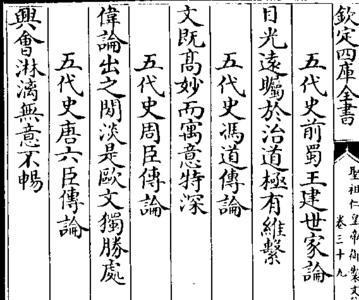 欽定四庫全書
聖祖仁皇帝御製文
卷三十九
五代史前蜀王建世家論
目光遠矚於治道極有維繫
五代史馮道傳論
文既高妙而寓意特深
五代史周臣傳論
偉論出之閒淡是歐文獨勝處
五代史唐六臣傳論
興會淋漓無意不暢